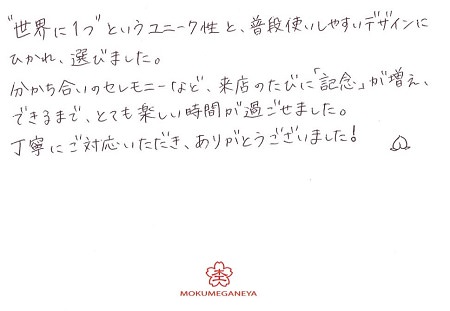 "世界に1つ"というユニーク性と、普段使いしやすいデザインに
ひかれ、選びました。
分かち合いのセレモニーなど、来店のたびに「記念」が増え、
できるまで、とても楽しい時間が過ごせました。
丁寧にご対応いただき、ありがとうございました!
MOKUMEGANEYA